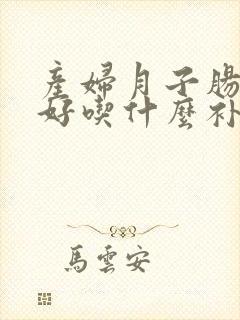 產婦月子腸
好喫什麼补
馬雲安